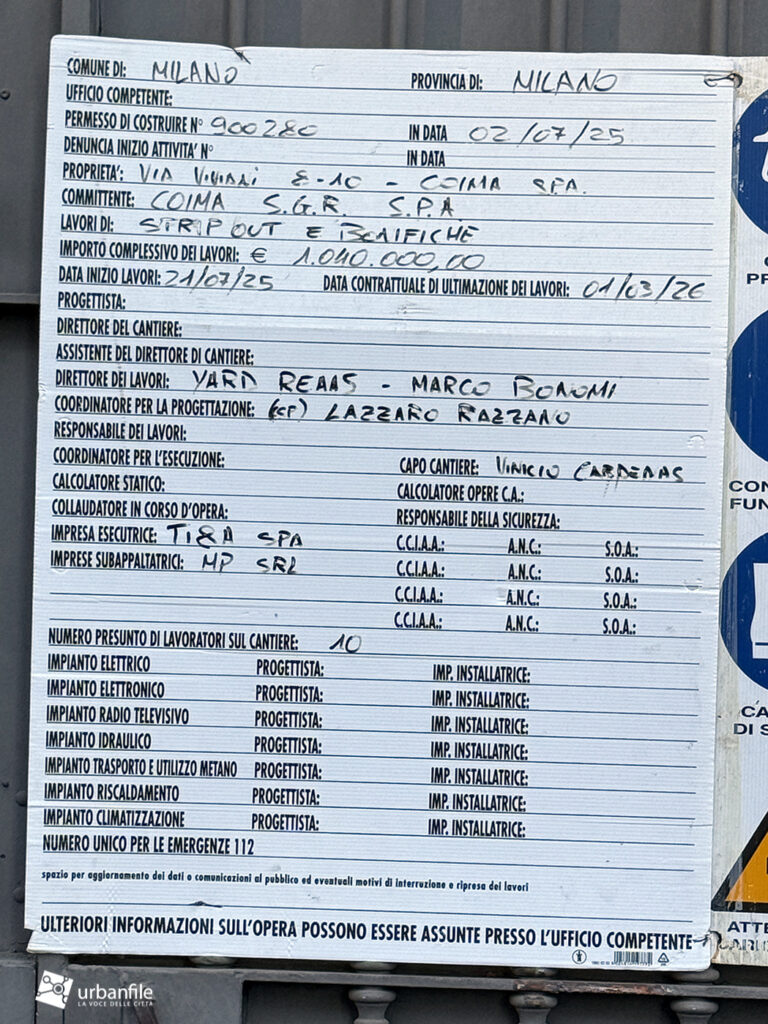 COMUNE DI: MILANO PROVINCIA DI: MILANO
UFFICIO COMPETENTE:
PERMESSO DI COSTRUIRE N° 900280 IN DATA 02/07/25
DENUNCIA INIZIO ATTIVITA' N° IN DATA
PROPRIETA': VIA VIVIANI 8-10 - COIMA SPA.
COMMITTENTE: COIMA S.G.R. S.P.A
LAVORI DI: STRIP OUT E BONIFICHE
IMPORTO COMPLESSIVO DEI LAVORI: € 1.040.000,00
DATA INIZIO LAVORI: 21/07/25 DATA CONTRATTUALE DI ULTIMAZIONE DEI LAVORI: 01/03/26
PROGETTISTA:
DIRETTORE DEL CANTIERE:
ASSISTENTE DEL DIRETTORE DI CANTIERE:
DIRETTORE DEI LAVORI: YARD REAAS - MARCO BONOMI
COORDINATORE PER LA PROGETTAZIONE: LAZZARO RAZZANO
RESPONSABILE DEI LAVORI:
COORDINATORE PER L'ESECUZIONE: CAPO CANTIERE: VINICIO CARDENAS
CALCOLATORE STATICO: CALCOLATORE OPERE C.A.:
COLLAUDATORE IN CORSO D'OPERA: RESPONSABILE DELLA SICUREZZA:
IMPRESA ESECUTRICE: TI&A SPA C.C.I.A.A.: A.N.C.: S.O.A.:
IMPRESE SUBAPPALTATRICI: MP SRL C.C.I.A.A.: A.N.C.: S.O.A.:
C.C.I.A.A.: A.N.C.: S.O.A.:
C.C.I.A.A.: A.N.C.: S.O.A.:
NUMERO PRESUNTO DI LAVORATORI SUL CANTIERE: 10
IMPIANTO ELETTRICO PROGETTISTA: IMP. INSTALLATRICE:
IMPIANTO ELETTRONICO PROGETTISTA: IMP. INSTALLATRICE:
IMPIANTO RADIO TELEVISIVO PROGETTISTA: IMP. INSTALLATRICE:
IMPIANTO IDRAULICO PROGETTISTA: IMP. INSTALLATRICE:
IMPIANTO TRASPORTO E UTILIZZO METANO PROGETTISTA: IMP. INSTALLATRICE:
IMPIANTO RISCALDAMENTO PROGETTISTA: IMP. INSTALLATRICE:
IMPIANTO CLIMATIZZAZIONE PROGETTISTA: IMP. INSTALLATRICE:
NUMERO UNICO PER LE EMERGENZE 112
spazio per aggiornamento dei dati o comunicazioni al pubblico ed eventuali motivi di interruzione e ripresa dei lavori
ULTERIORI INFORMAZIONI SULL'OPERA POSSONO ESSERE ASSUNTE PRESSO L'UFFICIO COMPETENTE
PR
CON
FUN
CA
DI S
ATTE
urbanfile
LA VOCE DELLE CITTÀ